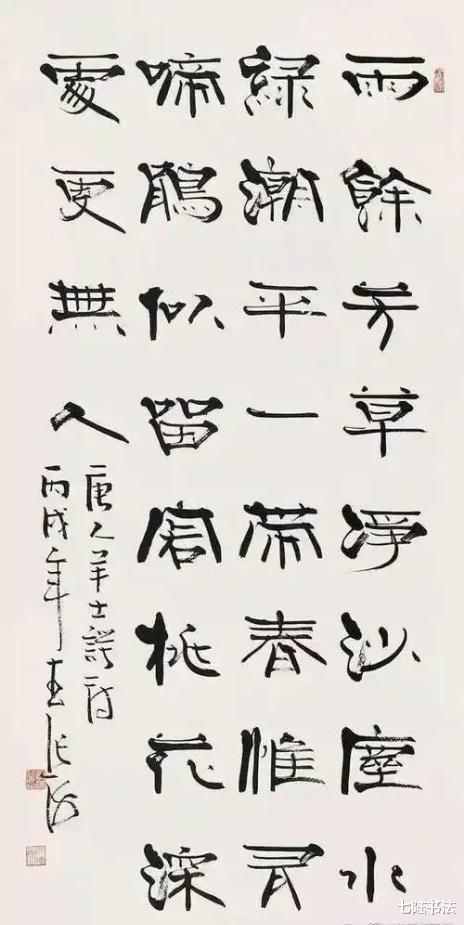 雨餘芳草淨沙塵水
綠潮平一帶春惟有
啼鵑似留客桃花深
處更無人
唐人羊士諤詩
丙戌年張海
七陆书法